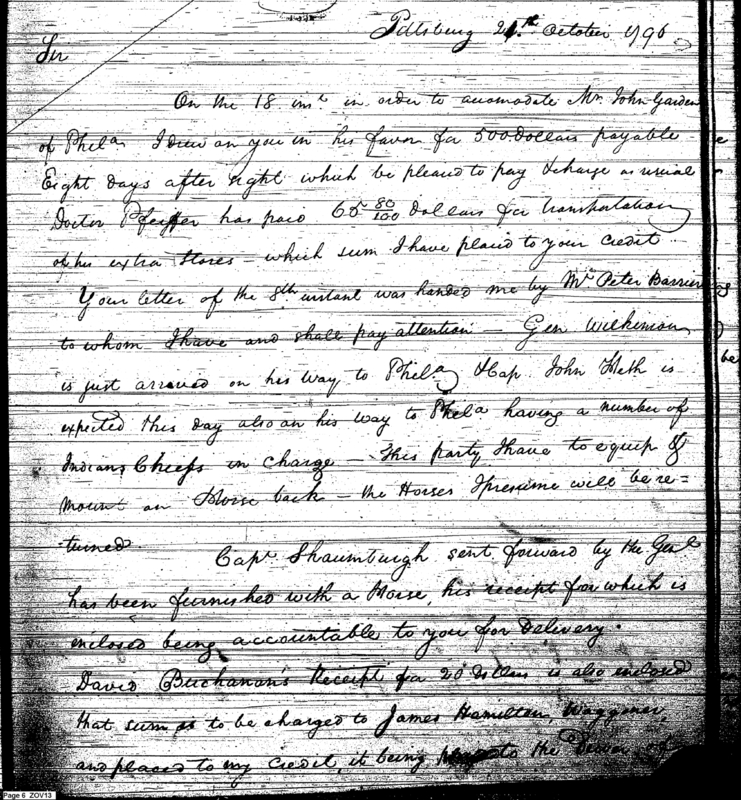 Pittsburg 21st October 1796
Sir
On the 18 inst in order to accomodate Mr. John Garden
of Phila I drew on you in his favor for 500 dollars payable
Eight days after sight which be pleased to pay & charge as usual
Doctor Pfeiffer has paid 65 80/100 dollars for transportation
of his extra Stores – which sum I have placed to your Credit
Your letter of the 8th instant was handed me by Mr Peter
to whom I have and shall pay attention — Gen Wilkinson
is just arrived on his way to Phila & Cap John Heth is
expected this day also on his way to Phila having a number of
Indians Chiefs in Charge – This party I have to equip &
mount on Horse back – the Horses I presume will be re=
=turned.
Capt Shaumburgh sent forward by the Genl
has been furnished with a Horse, his receipt for which is
enclosed being accountable to you for Delivery.
David Buchanan's Receipt for 20 dollars is also enclosed
that sum is to be charged to James Hamilton, Waggoner,
and placed to my Credit, it being to the of
be
Page 6 ZOV13